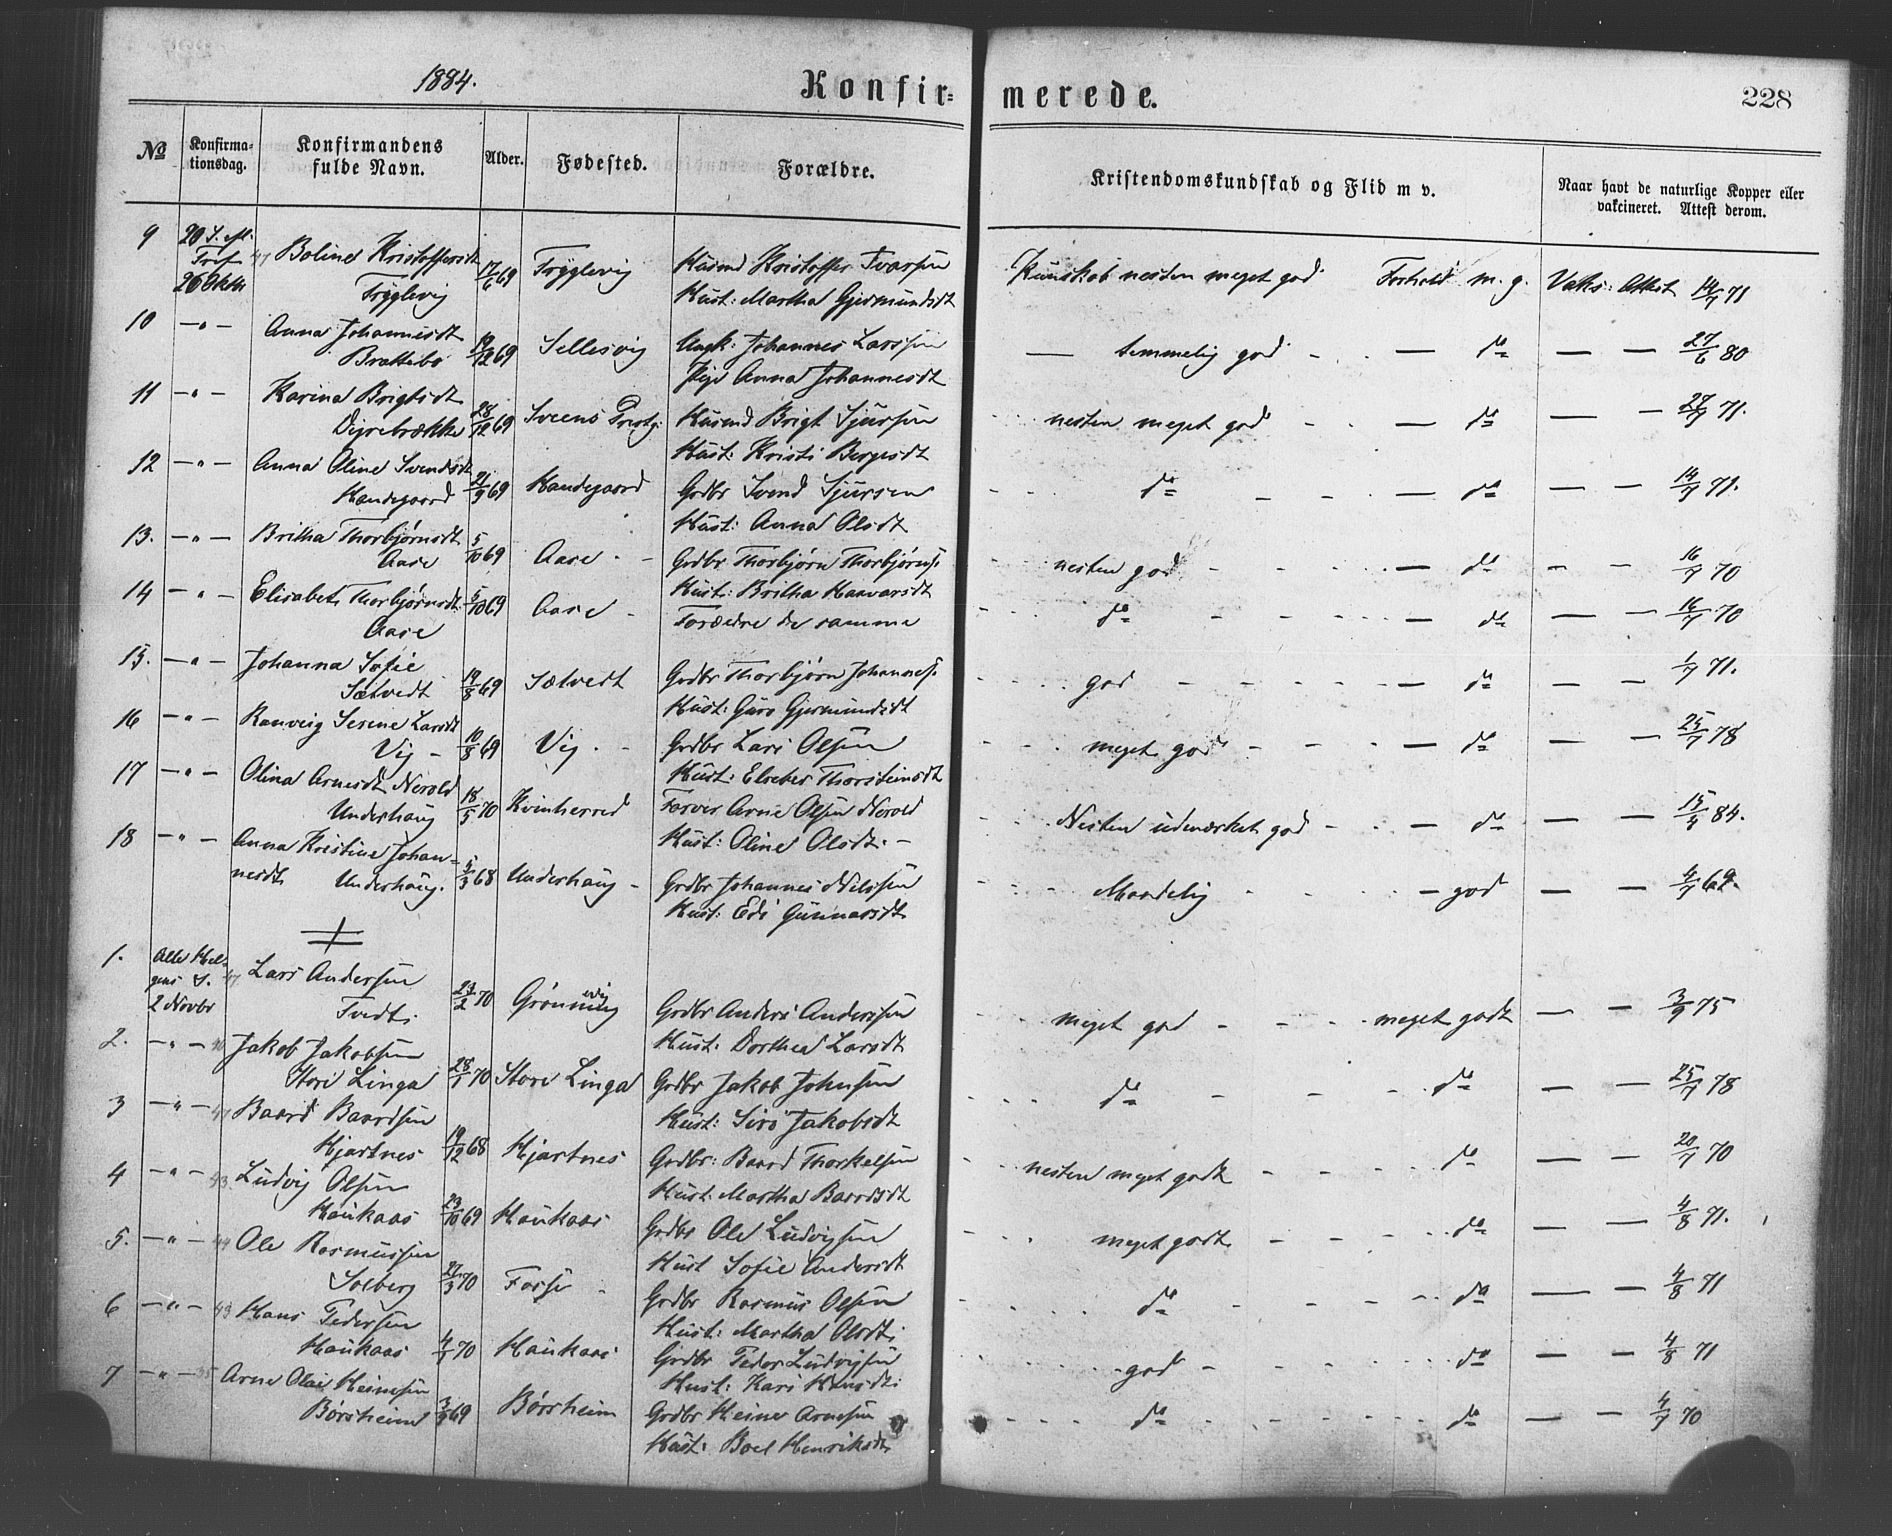 1884.
Konfir-
merede.
228
No
Konfirma-
tionsdag.
Konfirmandens
fulde Navn.
Alder.
Fødested.
Forældre.
Kristendomskundskab og Flid m v.
Naar havt de naturlige Kopper eller
vakcineret. Attest derom.
9 20 S. eft. Boline Kristoffersdt 17/6 69 Tryglevig Husmd Kristoffer Ivarsen Kunskab nesten meget god Forhold m. g. Vaks: Attest 14/7 71
Tref
26 Oktb Tryglevig Hust: Martha Gjermundsdt
10 -"- Anna Johannesdt 19/12 69 Sellesvig Ungk: Johannes Larssen — temmelig god — do — — 27/6 80
Brattebø Pige Anna Johannesdt
11 -"- Karina Brigtsdt 28/12 69 Sveens Prestg: Husmd Brigt Sjursen nesten meget god — do — — 71.
Dyrebrække Hust: Kristi Bergesdt
12 -"- Anna Oline Svendsdt 21/9 69 Handegaard Grdbr Svend Sjursen do — do — — 14/7 71.
Handegaard Hust: Anna Olsdt
13. -"- Britha Thorbjørnsdt 5/10 69 Aase Grdbr Thorbjørn Thorbjørns. nesten god — do — — 16/7 70
Aase Hust: Britha Haavarsdt
14 -"- Elisabet Thorbjørnsdt 5/10 69 Aase Forældre de samme do — do — — 16/7 70
Aase
15. -"- Johanna Sofie 19/8 69 Sætvedt Grdbr Thorbjørn Johannes. god — do — — 1/7 71.
Sætvedt Hust: Guro Gjermundsdt
16 -"- Ranveig Serene Larsdt 10/8 69 Vig Grdbr Lars Olsen meget god — do — — 25/7 78
Vig Hust: Elsebet Thorsteinsdt
17 -"- Olina Arnesdt Nerold 18/5 70 Kvinherred Farver Arne Olsen Nerold Nesten udmærket god — do — — 15/4 84.
Underhaug Hust: Oline Olsdt.
18 -"- Anna Kristine Johan- 5/3 68 Underhaug Grdbr Johannes Nilssen Maadelig — god — — 4/7 69.
nesdt Underhaug. Hust: Edi Gunnarsdt
1. Alle Hel- 47 Lars Andersen 23/2 70 Grønning Grdbr Anders Anderssen meget god meget godt — — 3/9 75
gens S.
2 Novbr Tvedt Hust: Dorthea Larsdt
2. -"- Jakob Jakobsen 28/1 70 Store Linga Grdbr Jakob Johnsen do do — — 25/7 78
Store Linga Hust: Siri Jakobsdt
3 -"- 47 Baard Baardsen 19/12 68 Hjartnes Grdbr: Baard Thorkelsen nesten meget godt do — — 20/7 70
Hjartnes Hust: Martha Baardsdt
4 -"- 43. Ludvig Olsen 23/10 69 Haukaas Grdbr Ole Ludvigsen meget godt do — — 4/8 71.
Haukaas Hust Sofie Andersdt
5. -"- 44 Ole Rasmussen 27/3 70 Grdbr Rasmus Olsen do do — — 4/8 71
Solberg Hust: Martha Olsdt
6 -"- 43 Hans Pedersen 70 Haukaas Grdbr Peder Ludvigsen god do — — 4/8 71
Haukaas Hust: Kari Hansdt
7 -"- 35 Arne Olai Heinesen 3/9 69 Børsheim Grdbr Heine Arnesen do do — — 4/7 70
Børsheim Hust: Boel Henriksdt